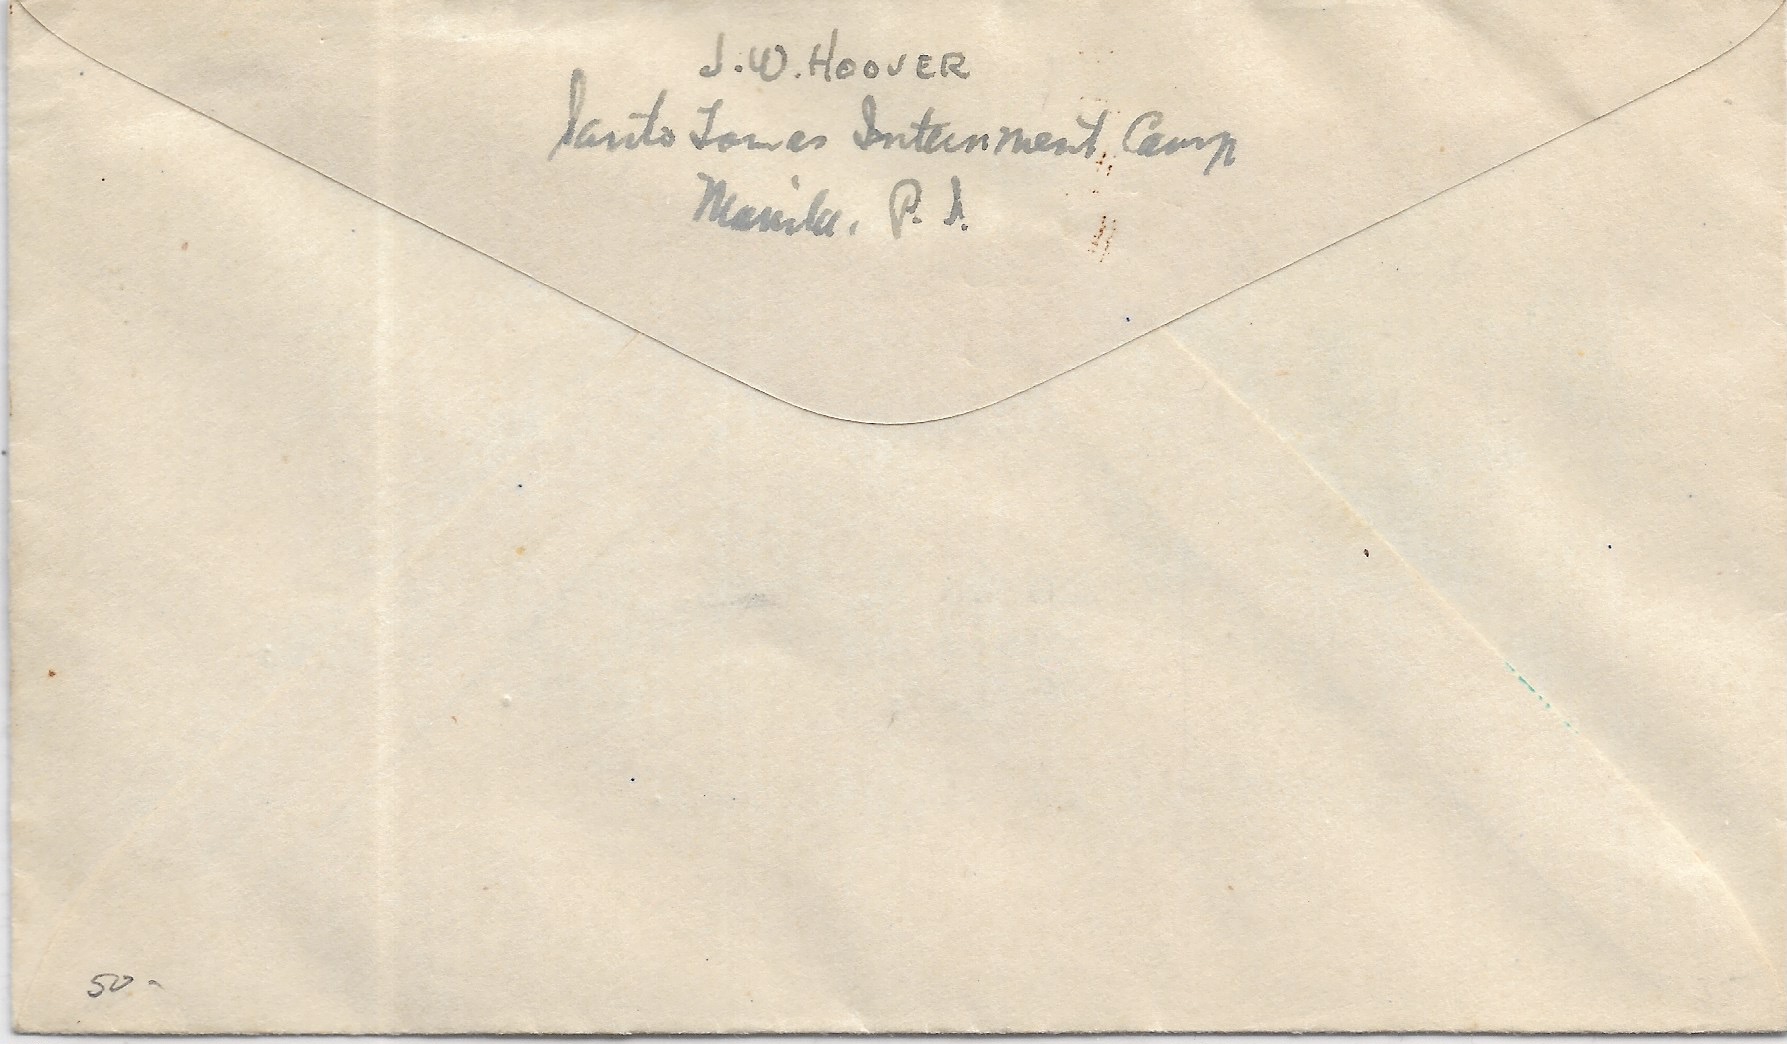 J. W. HOOVER
Santo Tomas Internment Camp
Manila, P. I.
50-